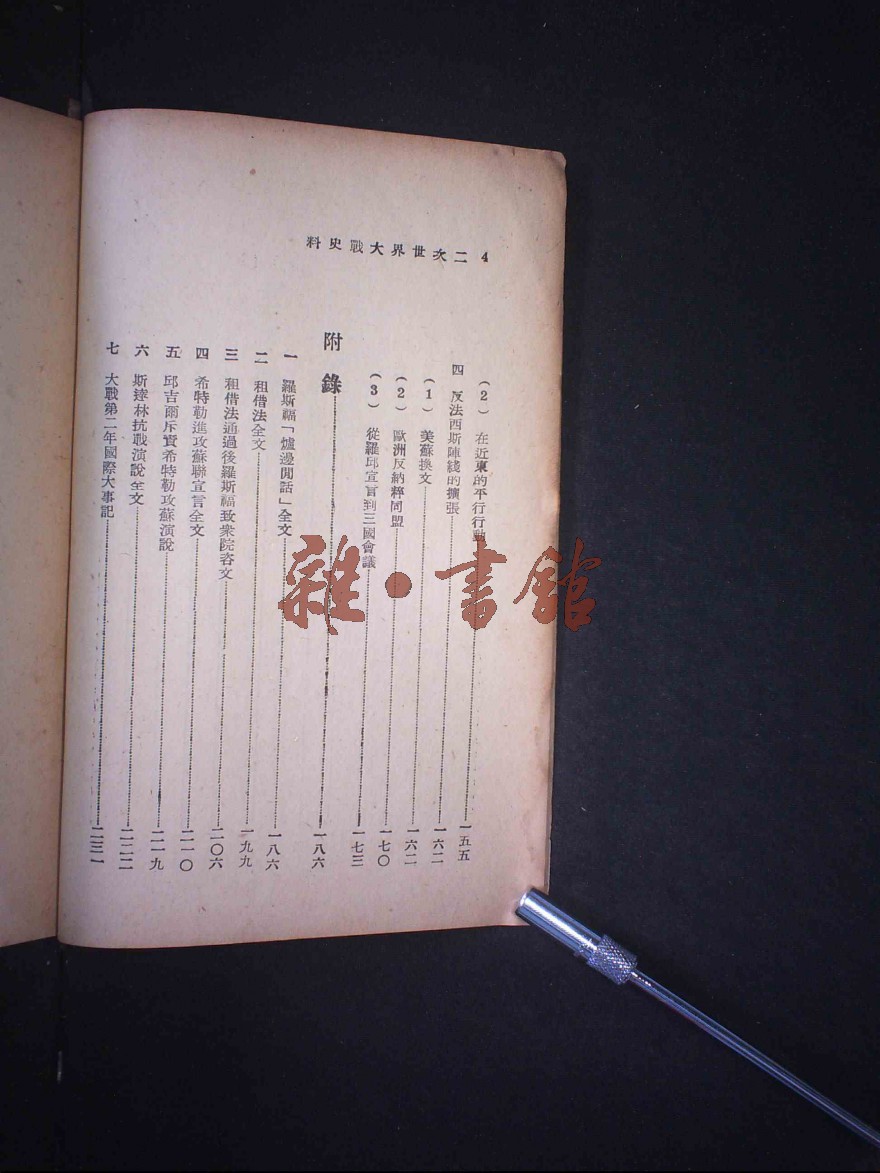 4 二次世界大戰史料
(2) 在近東的平行行動……一五五
四 反法西斯陣綫的擴張……一六二
(1) 美蘇換文……一六二
(2) 歐洲反納粹同盟……一七〇
(3) 從羅邱宣言到三國會議……一七三
附錄……一八六
一 羅斯福「爐邊閒話」全文……一八六
二 租借法全文……一九九
三 租借法通過後羅斯福致衆院咨文……二〇六
四 希特勒進攻蘇聯宣言全文……二一〇
五 邱吉爾斥責希特勒攻蘇演說……二一九
六 斯達林抗戰演說全文……二二二
七 大戰第二年國際大事記……二三一
雜·書館